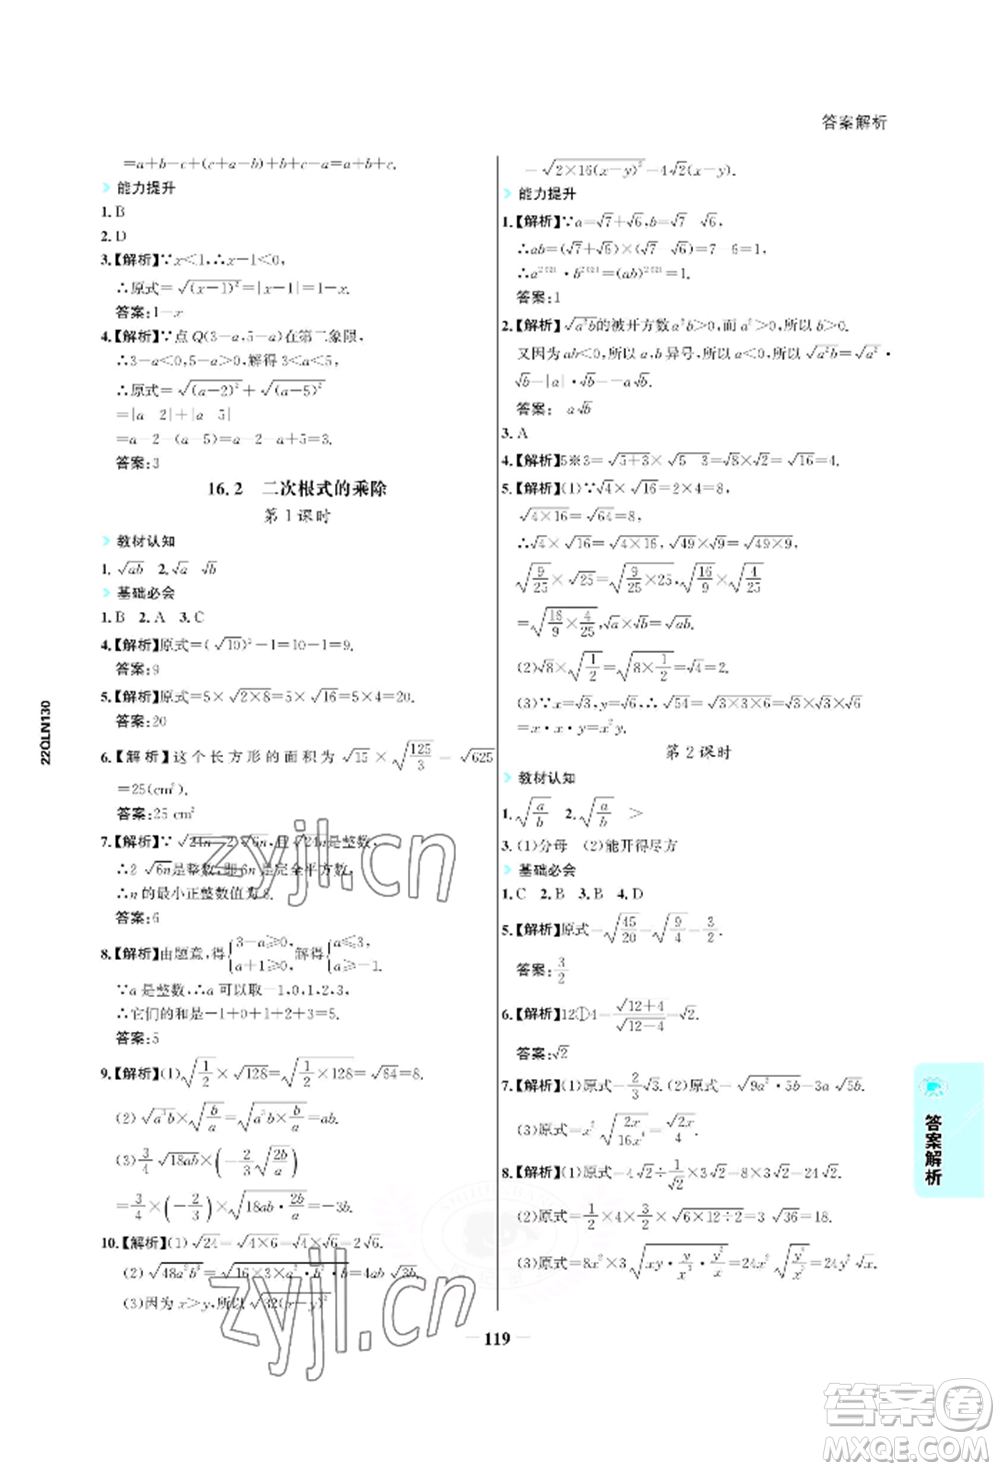 答案解析
=a+b-c+(c+a-b)+b+c-a=a+b+c.
能力提升
1. B
2. D
3.【解析】∵x<1,∴x-1<0,
∴原式=√(x-1)²=|x-1|=1-x.
答案:1-x
4.【解析】∵点Q(3-a,5-a)在第二象限,
∴3-a<0,5-a>0,解得3<a<5,
∴原式=√(a-2)²+√(a-5)²
=|a 2|+|a 5|
=a-2-(a-5)=a-2-a+5=3.
答案:3
16.2 二次根式的乘除
第1课时
教材认知
1.√ab 2.√a √b
基础必会
1. B 2. A 3. C
4.【解析】原式=(√10)²-1=10-1=9.
答案:9
5.【解析】原式=5×√2×8=5×√16=5×4=20.
答案:20
6.【解析】这个长方形的面积为√15×√125/3=√625
=25(cm²).
答案:25 cm²
7.【解析】∵√24n=2√6n,√24n是整数,
∴2√6n是整数,即6n是完全平方数,
∴n的最小正整数值为6.
答案:6
8.【解析】由题意,得{3-a≥0, a+1≥0, 解得{a≤3, a≥-1.
∵a是整数,∴a可以取-1,0,1,2,3,
∴它们的和是-1+0+1+2+3=5.
答案:5
9.【解析】(1)√1/2×√128=√1/2×128=√64=8.
(2)√a³b×√b/a=√a³b·b/a=ab.
(3)3/4√18ab×(-2/3√2b/a)
=3/4×(-2/3)×√18ab·2b/a=-3b.
10.【解析】(1)√24=√4×6=√4×√6=2√6.
(2)√48a²b⁴=√16×3×a²·b²·b²=4ab²√3.
(3)因为x>y,所以√32(x-y)²
=√2×16(x-y)²=4√2(x-y).
能力提升
1.【解析】∵a=√7+√6,b=√7 √6,
∴ab=(√7+√6)×(√7 √6)=7 6=1,
∴a²⁰²¹·b²⁰²¹=(ab)²⁰²¹=1.
答案:1
2.【解析】√a²b的被开方数a²b>0,而a²>0,所以b>0.
又因为ab<0,所以a,b异号,所以a<0,所以√a²b=√a²·
√b=|a|·√b=-a√b.
答案: a√b
3. A
4.【解析】5※3=√5+3×√5 3=√8×√2=√16=4.
5.【解析】(1)∵√4×√16=2×4=8,
√4×16=√64=8,
∴√4×√16=√4×16,√49×√9=√49×9,
√9/25×√25=√9/25×25,√16/9×√4/25
=√16/9×4/25.
(2)√8×√1/2=√8×1/2=√4=2.
(3)∵x=√3,y=√6,∴√54=√3×3×6=√3×√3×√6
=x·x·y=x²y.
第2课时
教材认知
1.√a/b 2.√a/b >
3. (1)分母 (2)能开得尽方
基础必会
1. C 2. B 3. B 4. D
5.【解析】原式=√45/20=√9/4=3/2.
答案:3/2
6.【解析】12①4=√12+4/√12-4=√2.
答案:√2
7.【解析】(1)原式=2/3√3. (2)原式=√9a²·5b=3a√5b.
(3)原式=x²√2x/16x⁴=√2x/4.
8.【解析】(1)原式=4√2÷√2/3×3√2=4√3×3√2=24√3.
(2)原式=1/2×4×3/4×√6×12÷2=3/2×√36=18.
119
22QLN130
答案解析
zyjl.cn
答案圈
MXQE.COM